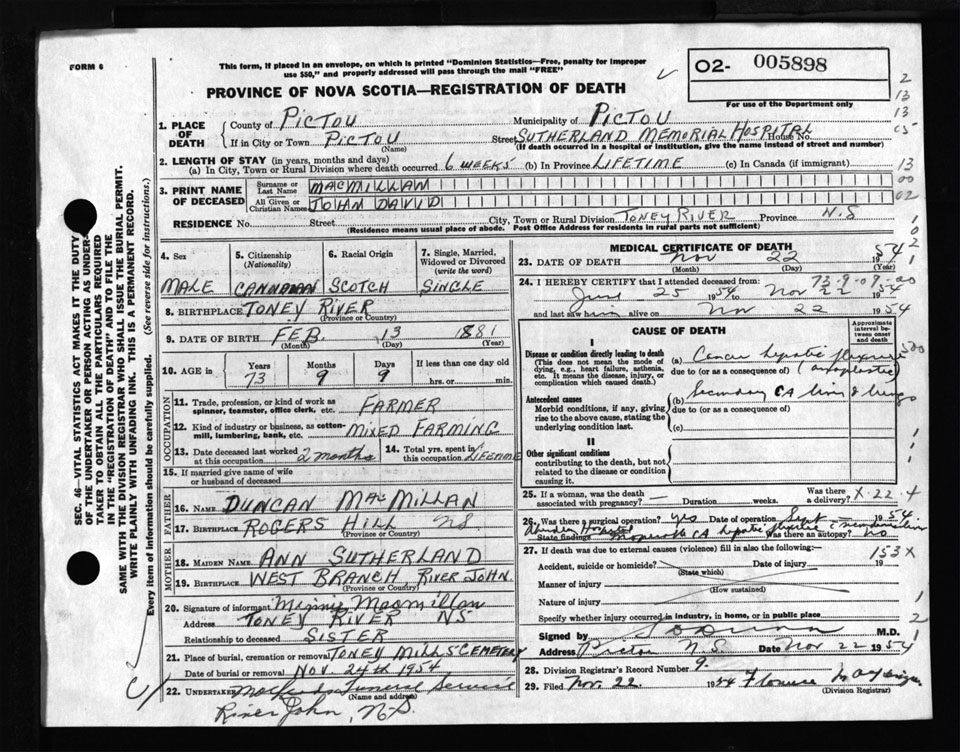 FORM 6
This form, if placed in an envelope, on which is printed "Dominion Statistics—Free, penalty for improper
use $50," and properly addressed will pass through the mail "FREE"
PROVINCE OF NOVA SCOTIA—REGISTRATION OF DEATH
02- 005898
For use of the Department only
1. PLACE OF DEATH
County of PICTOU Municipality of PICTOU
If in City or Town PICTOU (Name) Street SUTHERLAND MEMORIAL HOSPITAL House No.
(If death occurred in a hospital or institution, give the name instead of street and number)
2. LENGTH OF STAY (in years, months and days)
(a) In City, Town or Rural Division where death occurred 6 WEEKS (b) In Province LIFETIME (c) In Canada (if immigrant)
3. PRINT NAME OF DECEASED
Surname or Last Name MACMILLAN
All Given or Christian Names JOHN DAVID
RESIDENCE No. Street City, Town or Rural Division TONEY RIVER Province N.S
(Residence means usual place of abode. Post Office Address for residents in rural parts not sufficient)
4. Sex
MALE
5. Citizenship (Nationality)
CANADIAN
6. Racial Origin
SCOTCH
7. Single, Married, Widowed or Divorced (write the word)
SINGLE
8. BIRTHPLACE TONEY RIVER
(Province or Country)
9. DATE OF BIRTH FEB. 13 1881
(Month) (Day) (Year)
10. AGE in Years Months Days If less than one day old
73 9 9 hrs. or min.
OCCUPATION
11. Trade, profession, or kind of work as spinner, teamster, office clerk, etc. FARMER
12. Kind of industry or business, as cotton-mill, lumbering, bank, etc. MIXED FARMING
13. Date deceased last worked at this occupation 2 months
14. Total yrs. spent in this occupation LIFETIME
15. If married give name of wife or husband of deceased
FATHER
16. Name DUNCAN MACMILLAN
17. Birthplace ROGERS HILL NS
(Province or Country)
MOTHER
18. MAIDEN NAME ANN SUTHERLAND
19. BIRTHPLACE WEST BRANCH RIVER JOHN.
(Province or Country)
20. Signature of informant Minnie Macmillan
Address TONEY RIVER NS
Relationship to deceased SISTER
21. Place of burial, cremation or removal TONEY MILLS CEMETERY
Date of burial or removal NOV. 24th 1954
22. UNDERTAKER Funeral Service
(Name and address)
River John, N.S.
MEDICAL CERTIFICATE OF DEATH
23. DATE OF DEATH Nov 22 54
(Month) (Day) (Year)
24. I HEREBY CERTIFY that I attended deceased from:
June 25 1954 to Nov 22 1954
and last saw him alive on Nov 22 1954
CAUSE OF DEATH
Approximate interval between onset and death
I
Disease or condition directly leading to death
(This does not mean the mode of dying, e.g., heart failure, asthenia, etc. It means the disease, injury, or complication which caused death.)
(a) Cancer hepatic flexure
due to (or as a consequence of)
Antecedent causes
Morbid conditions, if any, giving rise to the above cause, stating the underlying condition last.
(b) Secondary CA liver & lungs
due to (or as a consequence of)
(c)
II
Other significant conditions
contributing to the death, but not related to the disease or condition causing it.
25. If a woman, was the death associated with pregnancy? — Duration weeks. Was there a delivery?
26. Was there a surgical operation? yes Date of operation Sept 1954
State findings Inoperable CA hepatic flexure Was there an autopsy? no
27. If death was due to external causes (violence) fill in also the following:—
Accident, suicide or homicide? Date of injury 19
(State which)
Manner of injury
(How sustained)
Nature of injury
Specify whether injury occurred in industry, in home, or in public place
Signed by M.D.
Address Pictou N.S. Date Nov 22 1954
28. Division Registrar's Record Number 9.
29. Filed Nov. 22 1954 Florence
(Division Registrar)
SEC. 46—VITAL STATISTICS ACT MAKES IT THE DUTY
OF THE UNDERTAKER OR PERSON ACTING AS UNDER-
TAKER TO OBTAIN ALL THE PARTICULARS REQUIRED
IN THE "REGISTRATION OF DEATH" AND TO FILE THE
SAME WITH THE DIVISION REGISTRAR WHO SHALL ISSUE THE BURIAL PERMIT.
WRITE PLAINLY WITH UNFADING INK. THIS IS A PERMANENT RECORD.
Every item of information should be carefully supplied. (See reverse side for instructions.)